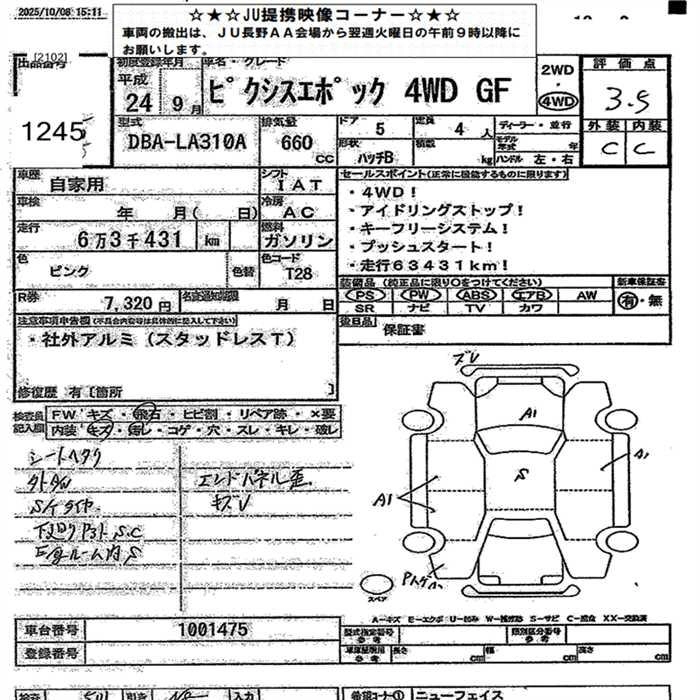 2025/10/08 15:11
☆★☆JU提携映像コーナー☆★☆
車両の搬出は、JU長野AA会場から翌週火曜日の午前9時以降に
お願いします。
[2102]
出品番号
1245
初度登録年月
平成
24年9月
車名・グレード
ピクシスエポック 4WD GF
2WD
・
4WD
評価点
3.5
外装 内装
C C
型式
DBA-LA310A
排気量
660
cc
ドア
5
定員
4人
形状
ハッチB
積載
kg
ディーラー・並行
モデル
年式
年
ハンドル 左・右
車歴
自家用
シフト
IAT
車検
年 月( 日)
冷房
AC
走行
6万3千431
km
燃料
ガソリン
色
ピンク
色替
色コード
T28
R券
7,320円
名変通知期限
月 日
セールスポイント(正常に機能するものに限ります)
・4WD!
・アイドリングストップ!
・キーフリーシステム!
・プッシュスタート!
・走行63431km!
装備品(純正品に限り○をつけてください)
PS PW ABS エアB AW
SR ナビ TV カワ
新車保証書
有・無
後日品
保証書
注意事項申告欄(不具合内容等は具体的に記入して下さい)
・社外アルミ(スタッドレスT)
修復歴 有[箇所 ]
検査員
記入欄
FW キズ・飛石・ヒビ割・リペア跡・×要
内装 キズ・汚し・コゲ・穴・スレ・キレ・破レ
シートヘタリ
エンドパネル歪
キズU
ズU
A1
S
A1
A1
スペア
A-キズ E-エクボ U-凹み W-補修跡 S-サビ C-腐食 XX-交換済
車台番号
1001475
登録番号
型式指定番号
参考
類別区分番号
参考
車体型状
参考
長さ
cm
幅
cm
高さ
cm
入力
ニューフェイス